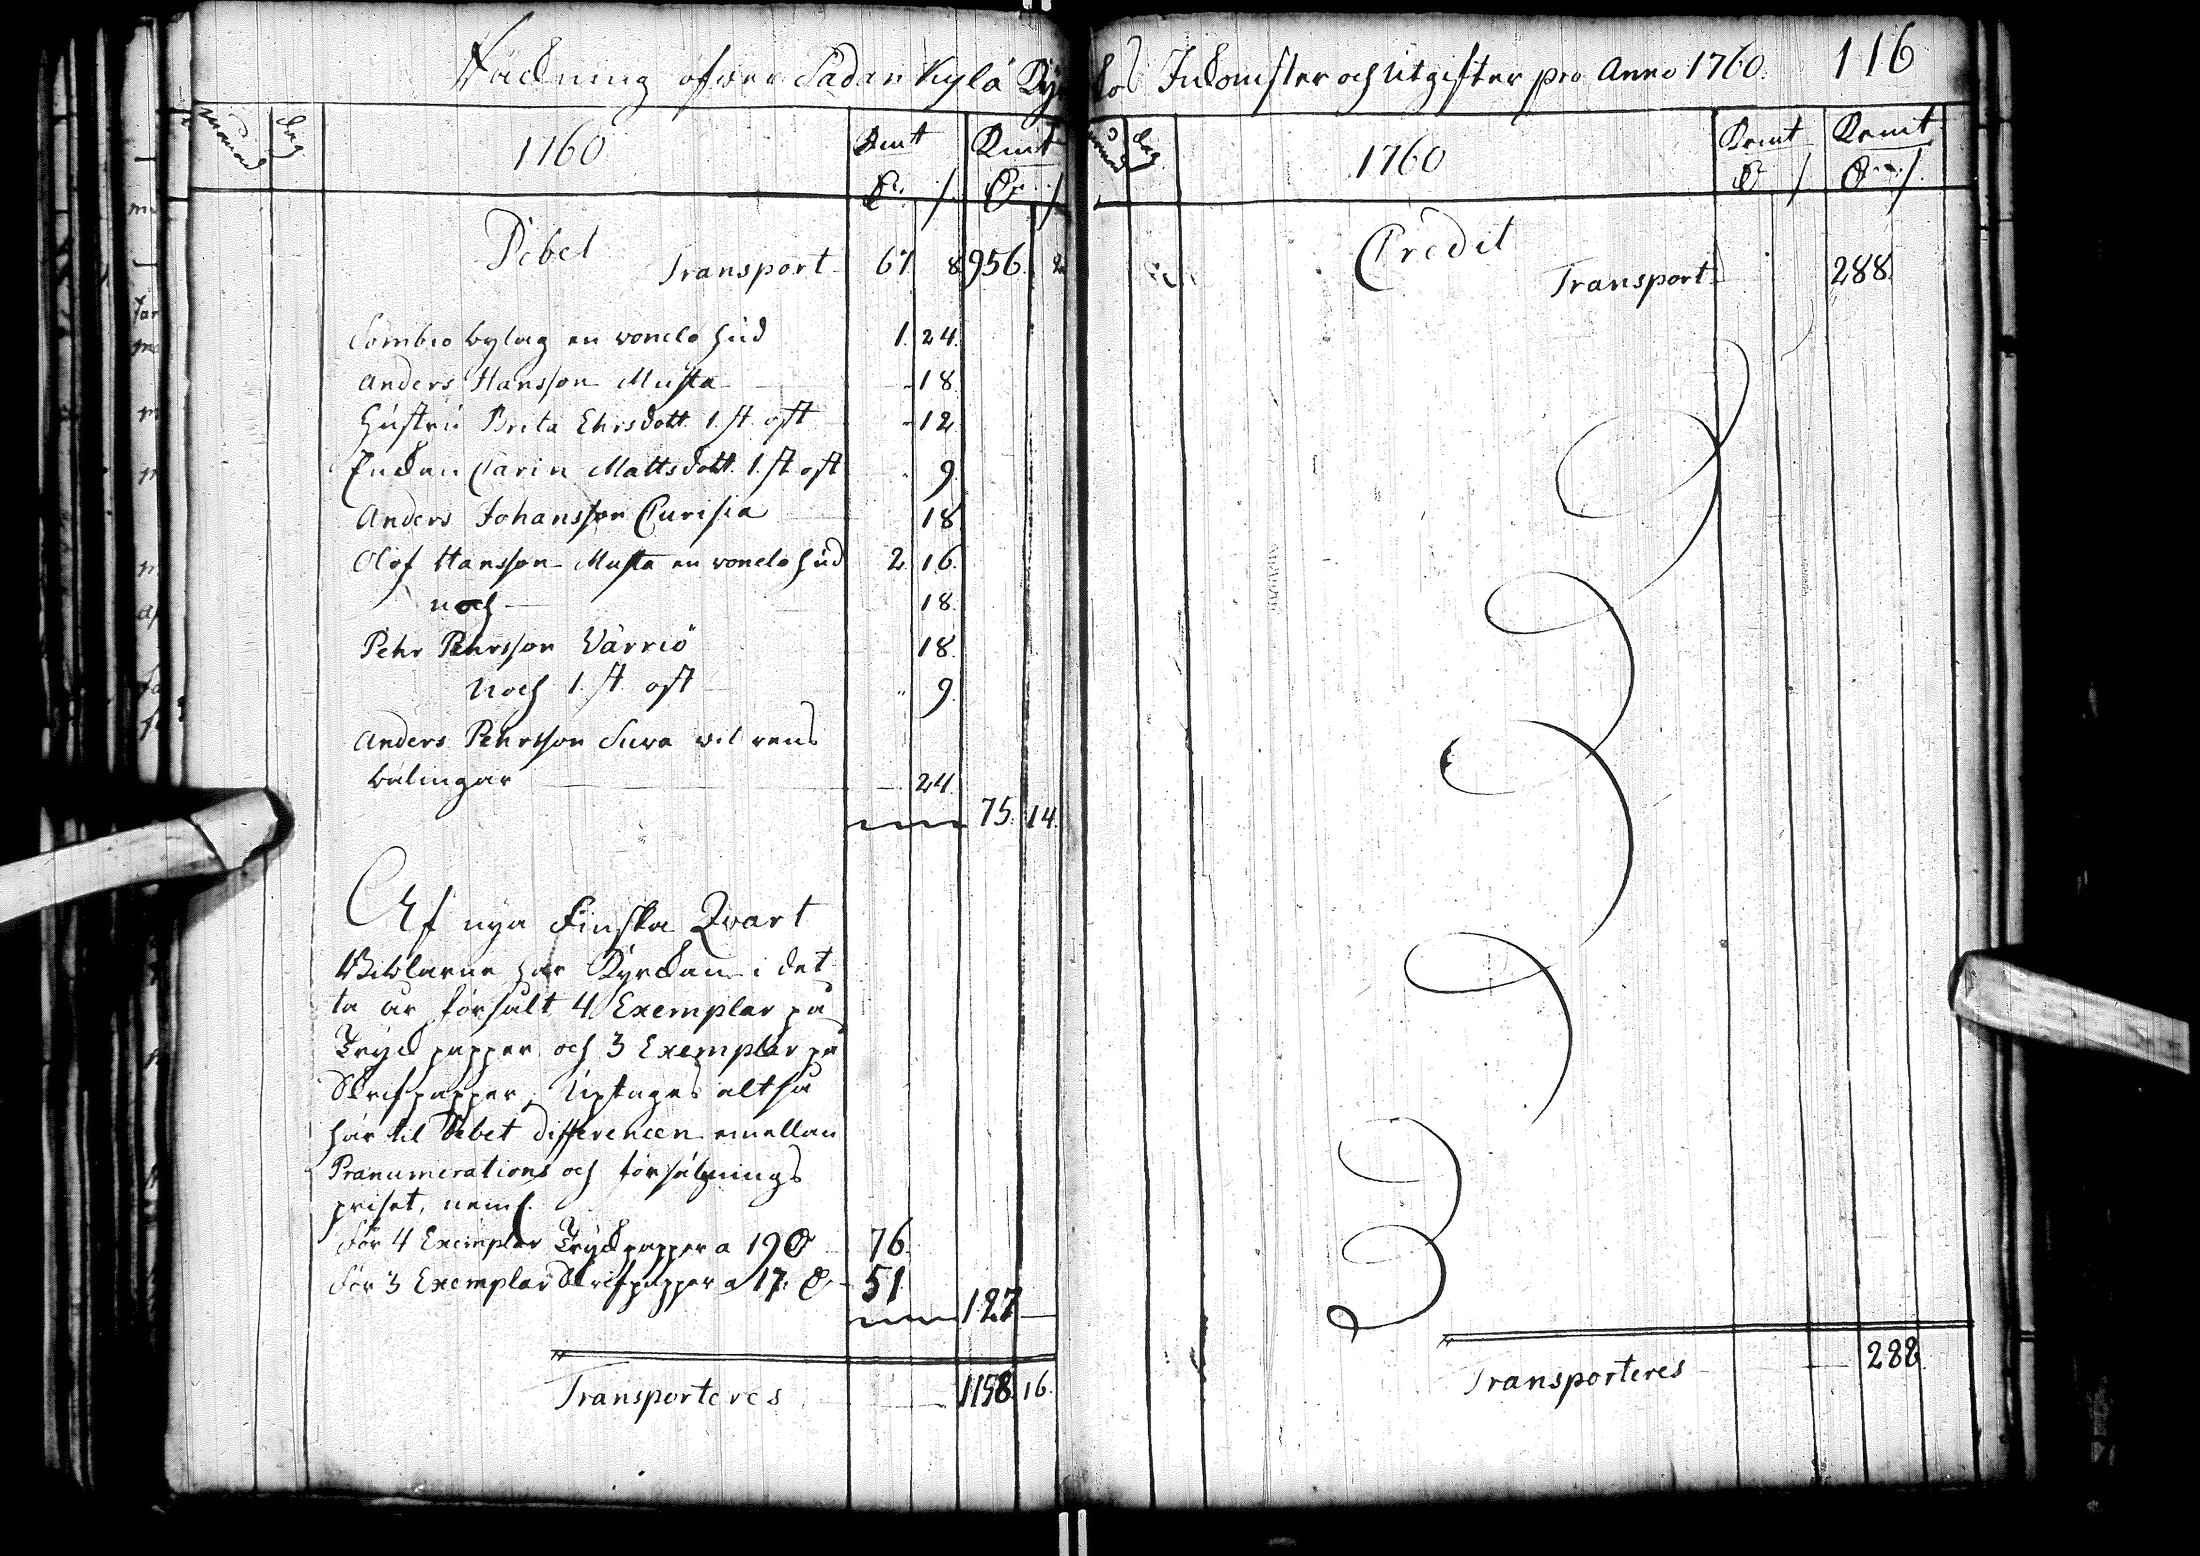 Räckning öfwer Sodankylä Kyrkos Inkomster och Utgifter pro Anno 1760. 116
Månad Dag 1760 Kmt Kmt
Debet
Transport 67 8 956 2
Sombio bylag en wonclo hud 1. 24.
Anders Hansson Musta - 18.
Hustru Brita Ehrsdott. 1. st. ost - 12
Enckan Carin Mattsdott. 1. st. ost 9.
Anders Johansson Curisia 18
Olof Hansson Musta en wonclo hud 2. 16.
noch 18.
Pehr Pehrsson Wärriö 18.
noch 1. st. ost 9.
Anders Pehrsson Suwa wil rens
bälingar 24
75. 14.
Af nya Finska Qwart
Biblarne har Kyrckan i det
ta år försålt 4 Exemplar på
Tryck papper och 3 Exemplar på
Skrifpapper, Uptages altså
här til Debet differencen emellan
Pranumerations och försälgnings
priset, neml.
För 4 Exemplar Tryckpapper a 19 76
För 3 Exemplar Skrifpapper a 17. 51
127
Transporteres 1158. 16.
Månad Dag 1760 Kmt Kmt
Credit
Transport 288.
Transporteres 288.